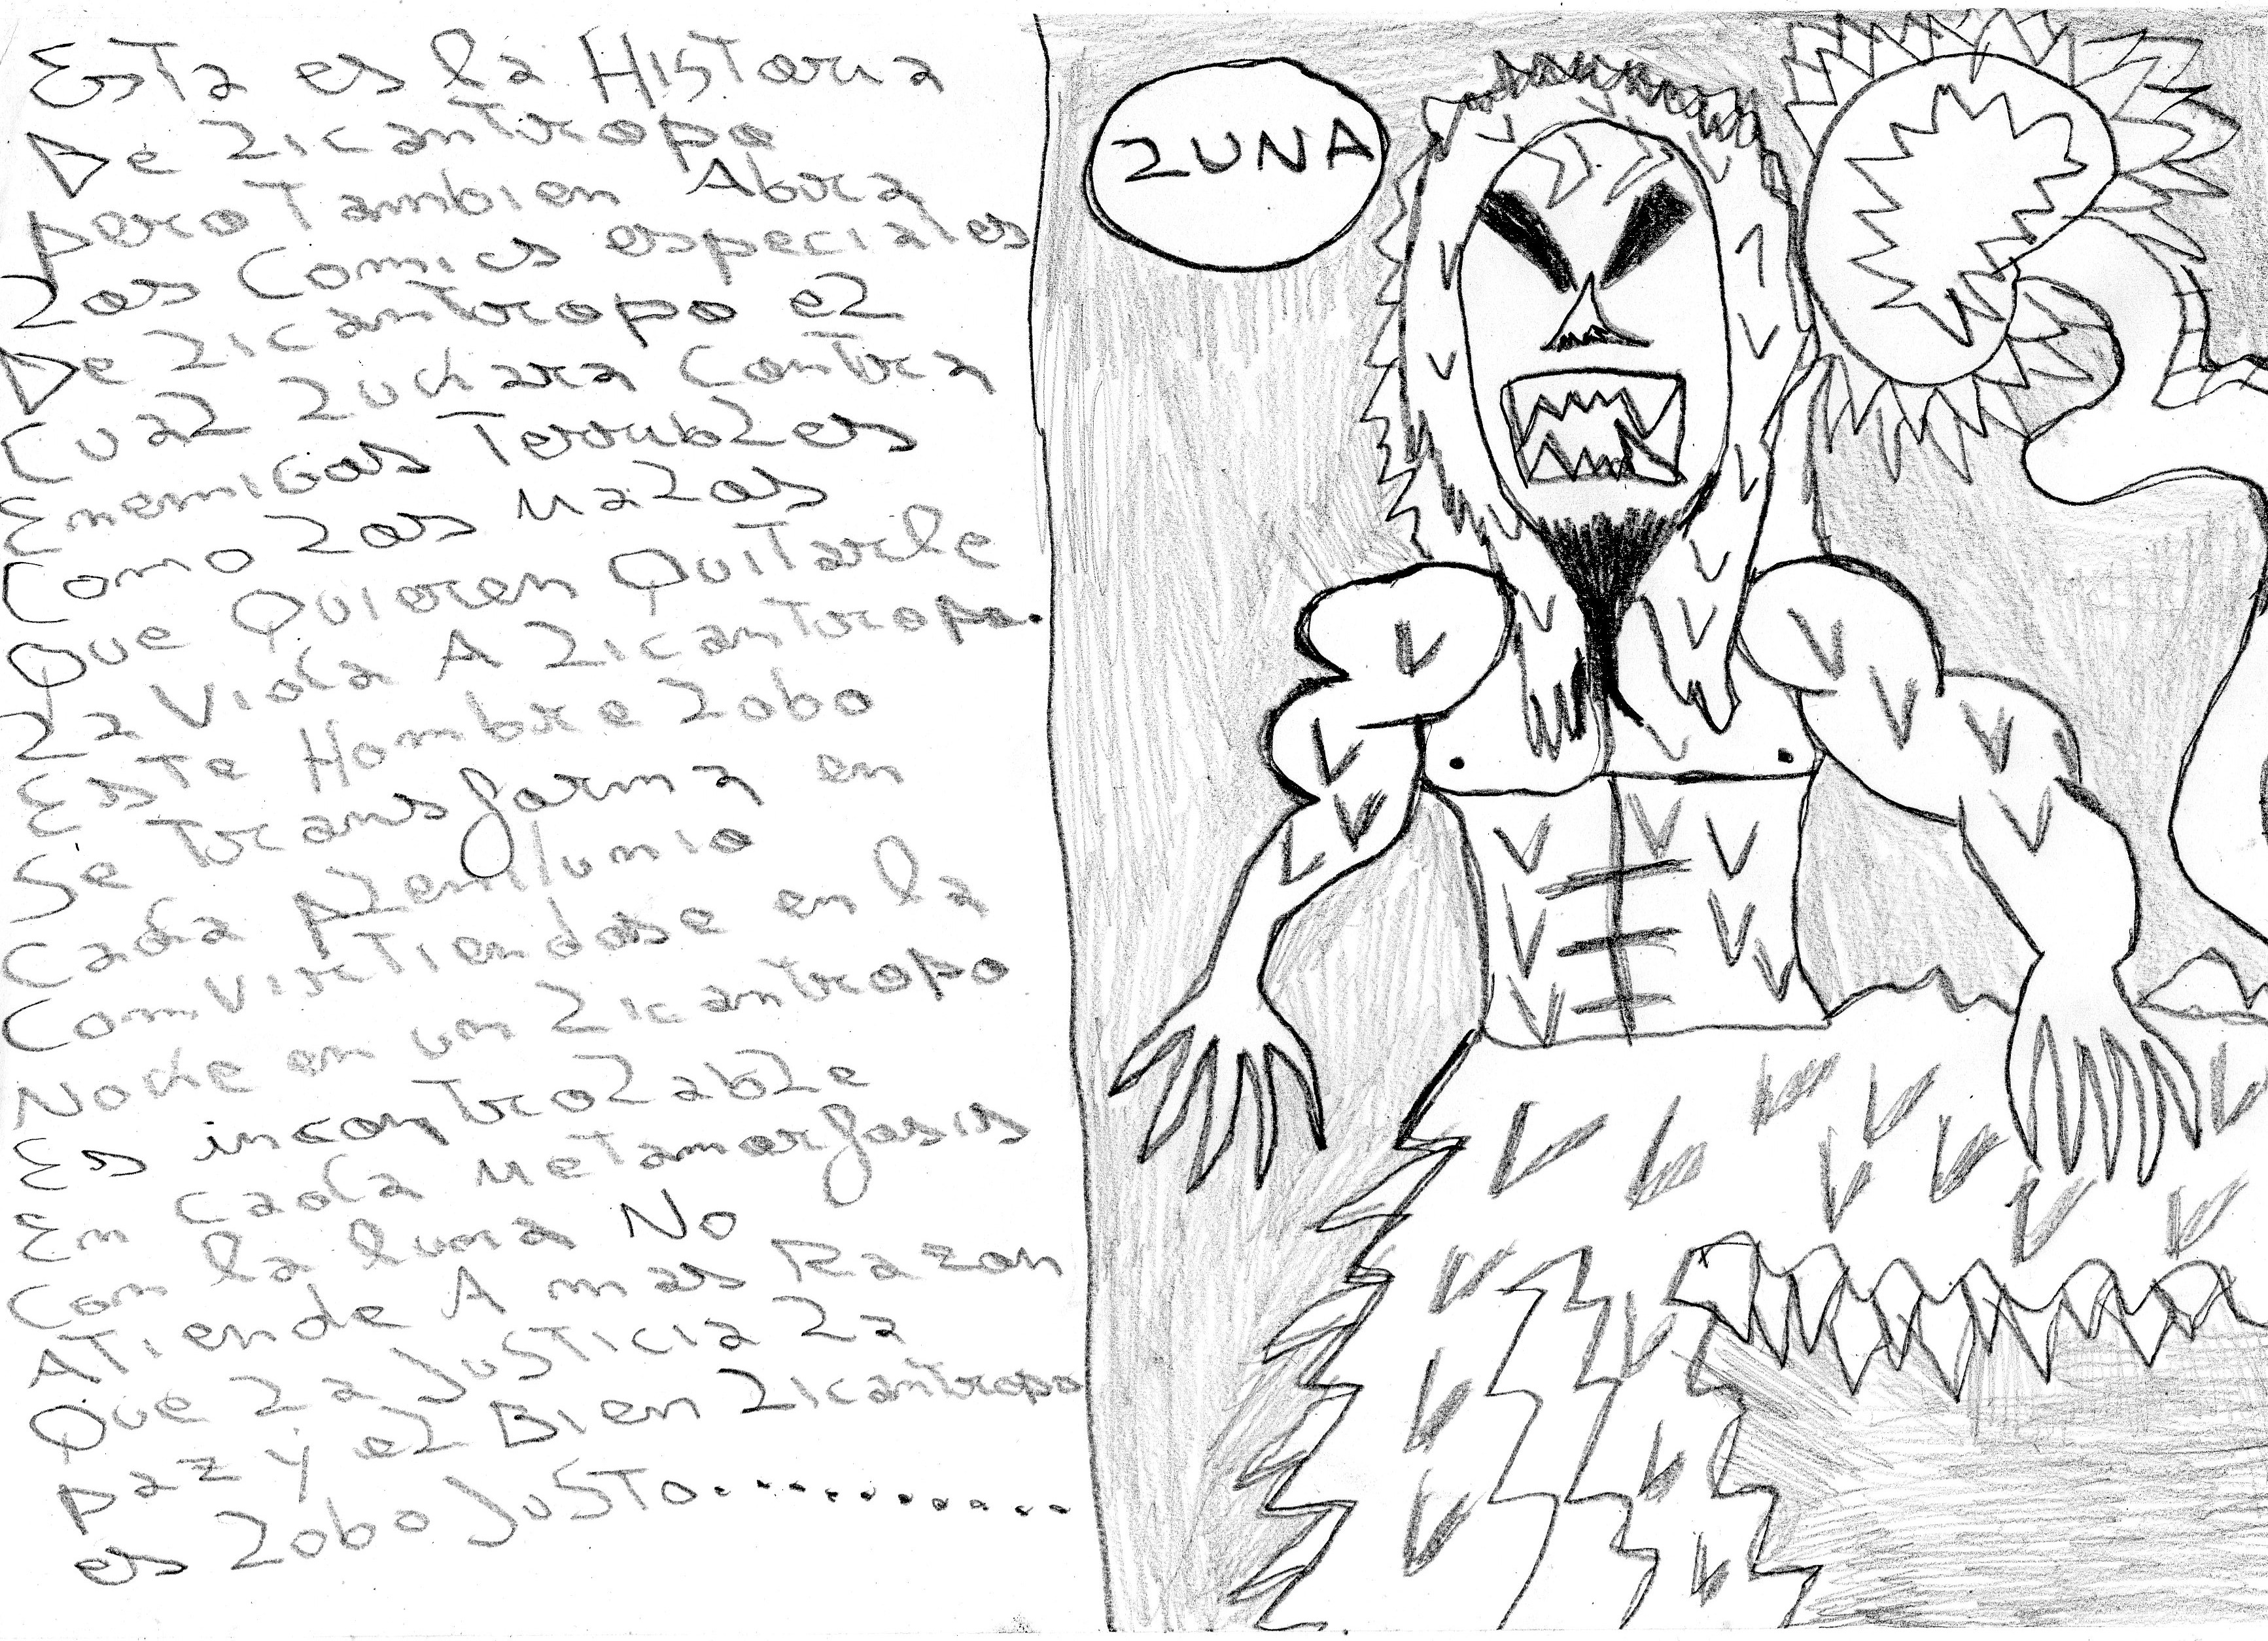 Esta es la Historia
De Licantropo
pero Tambien Abra
Los Comics especiales
De Licantropo eL
CuaL Luchara Contra
Enemigos TerribLes
Como Los MaLos
Que Quieren Quitarle
La Vida A Licantropo.
Este Hombre Lobo
Se transforma en
Cada pLenilunio
Comvirtiendose en la
Noche en un Licantropo
Es incontroLabLe
En cada Metamorfosis
Con la luna No
ATiende A mas Razon
Que La JusTicia La
paz y eL Bien Licantropo
es Lobo JusTo...........
LUNA